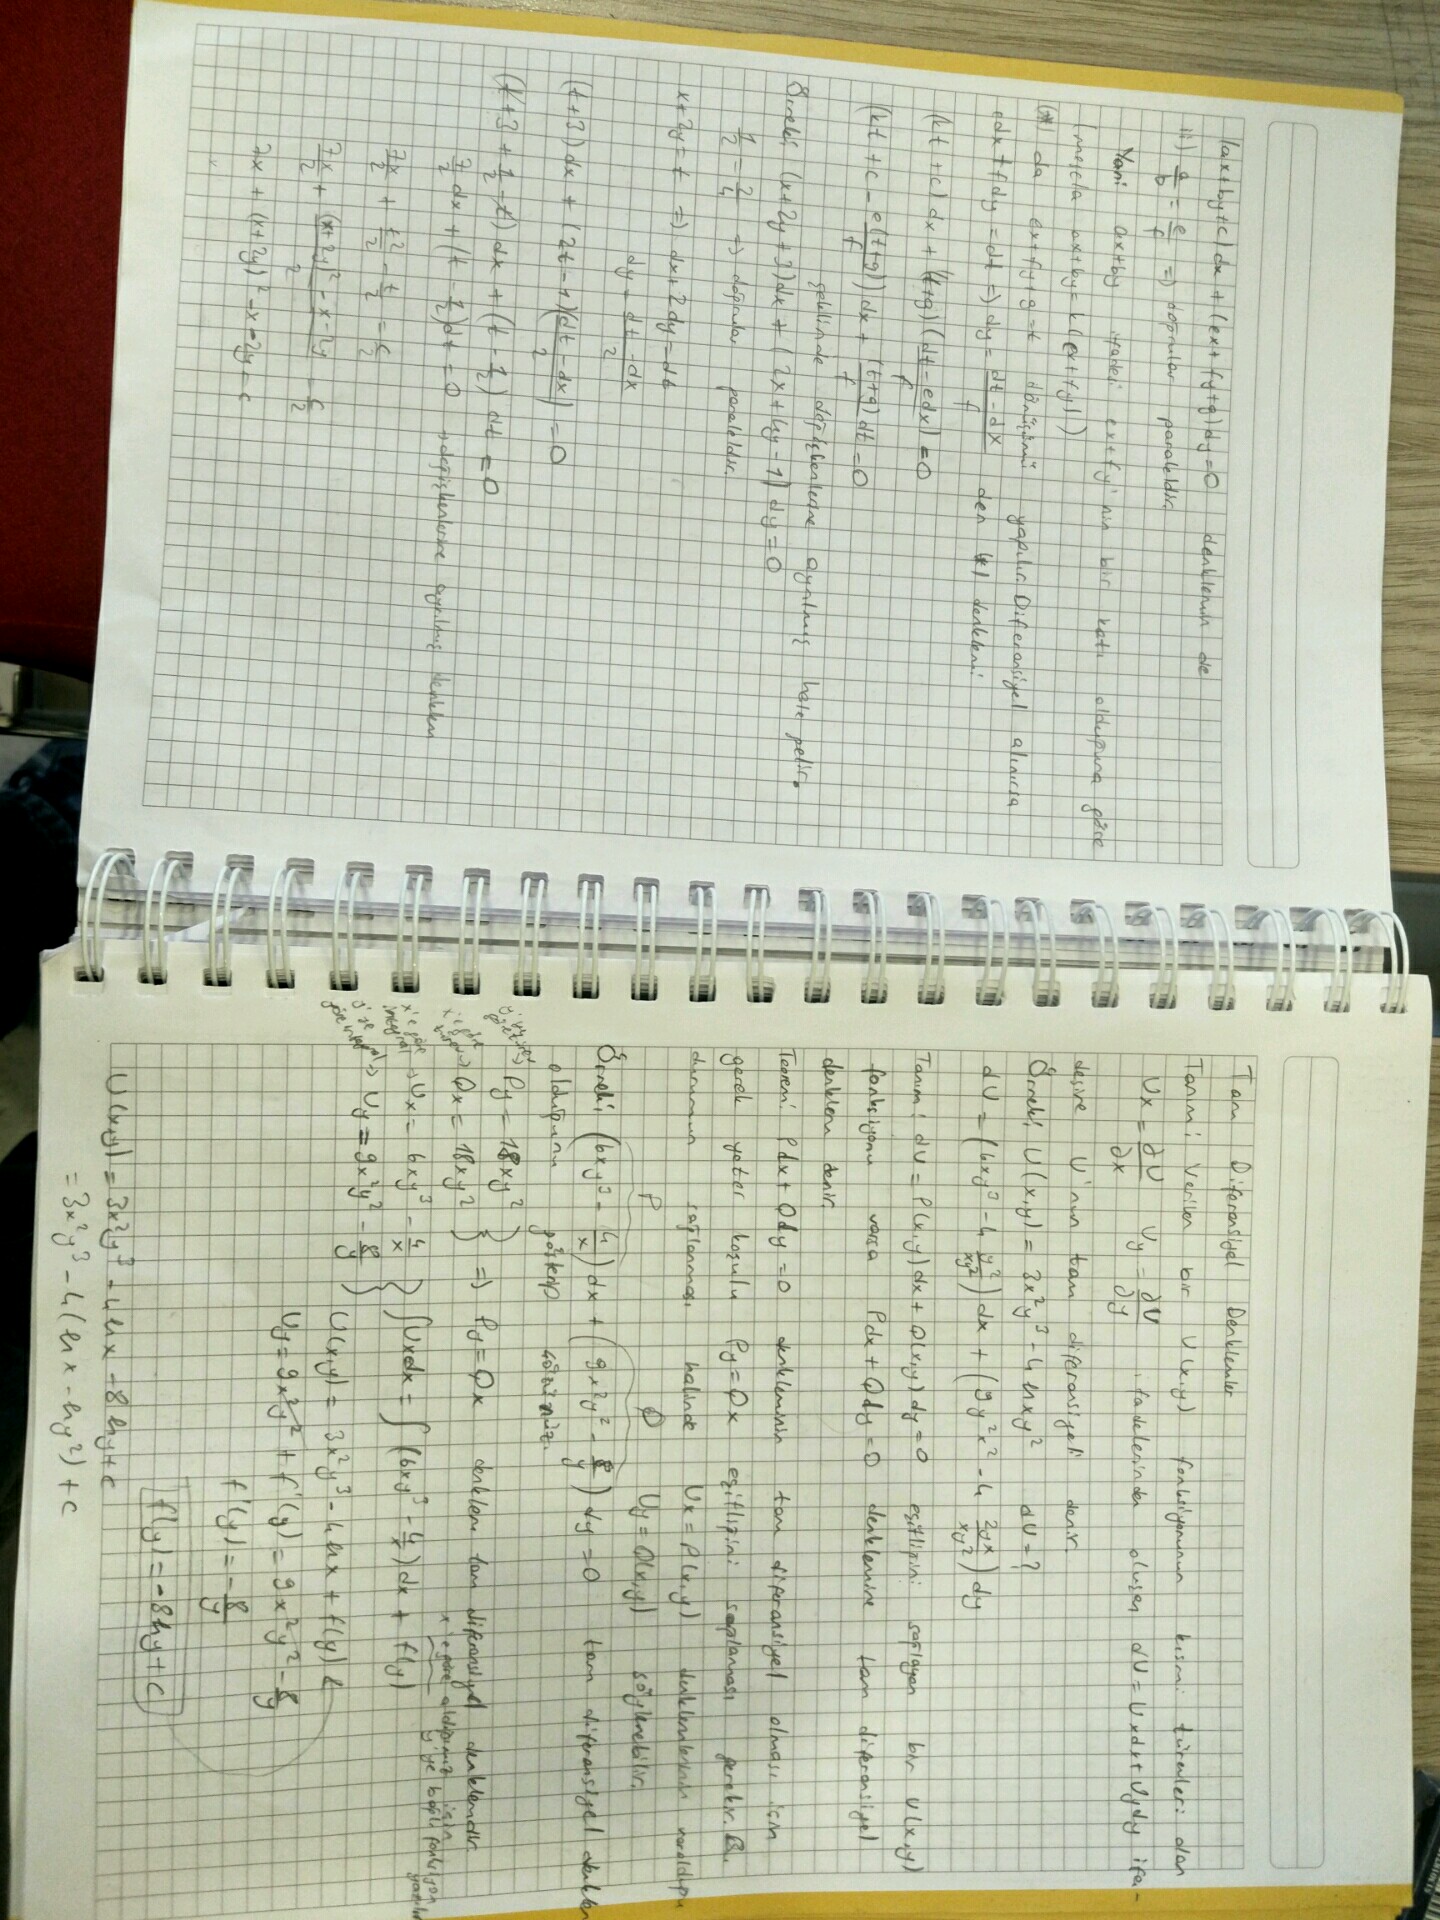 (ax+by+c) dx + (ex+fy+g) dy=0 denklemin de
ii) a/b = e/f => doğrular paraleldir.
Yani ax+by ifadesi ex+fy'nin bir katı olduğuna göre
(mesela ax+by=k(ex+fy))
(*) da ex+fy+g=t dönüşümü yapılır. Diferansiyel alınırsa
edx+fdy=dt => dy= (dt-dx)/f den (*) denklemi
(kt+c) dx + (t+g) (dt-edx)/f =0
(kt+c - e(t+g)/f) dx + (t+g)/f dt=0
şeklinde değişkenlerine ayrılmış hale gelir.
Örnek: (x+2y+3)dx + (2x+4y-1) dy=0
1/2 = 2/4 => doğrular paraleldir.
x+2y=t => dx+2dy=dt
dy = (dt-dx)/2
(t+3) dx + (2t-1) (dt-dx)/2 =0
(t+3+1/2-t) dx + (t-1/2) dt =0
7/2 dx + (t-1/2)dt=0 → değişkenlerine ayrılmış denklem
7x/2 + t²/2 - t/2 = c/2
7x/2 + ((x+2y)²-x-2y)/2 = c/2
7x + (x+2y)²-x-2y=c
Tam Diferansiyel Denklemler
Tanım: Verilen bir U(x,y) fonksiyonunun kısmi türevleri olan
Ux = ∂U/∂x Uy = ∂U/∂y ifadelerinden oluşan dU=Uxdx+Uydy ifa-
desine U'nun tam diferansiyeli denir.
Örnek: U(x,y) = 3x²y³-4lnxy² dU=?
dU = (6xy³-4 y²/xy²) dx + (9y²x²-4 2yx/xy²) dy
Tanım: dU = P(x,y)dx+Q(x,y)dy=0 eşitliğini sağlayan bir U(x,y)
fonksiyonu varsa Pdx+Qdy=0 denklemine tam diferansiyel
denklem denir.
Teorem: Pdx+Qdy=0 denkleminin tam diferansiyel olması için
gerek yeter koşulu Py=Qx eşitliğini sağlanması gerekir. Bu
durumun sağlanması halinde Ux=P(x,y) denklemlerinin varolduğu
Uy=Q(x,y) söylenebilir.
P Q
Örnek: (6xy³ - 4/x) dx + (9x²y² - 8/y) dy =0 tam diferansiyel denklem
olduğunu gösterip çözünüz.
Py = 18xy²
x'e göre türev → Qx = 18xy²
=> Py=Qx denklem tam diferansiyel denklemdir.
x'e göre aldığımız için
y'ye bağlı fonksiyon
x'e göre integral → Ux = 6xy³ - 4/x
∫Uxdx = ∫(6xy³ - 4/x) dx + f(y)
y'ye göre integral → Uy = 9x²y² - 8/y
U(x,y) = 3x²y³-4lnx+f(y)
Uy=9x²y² + f'(y) = 9x²y² - 8/y
f'(y) = -8/y
f(y) = -8lny+c
U(x,y) = 3x²y³-4lnx-8lny+c
=3x²y³-4(lnx-lny²)+c